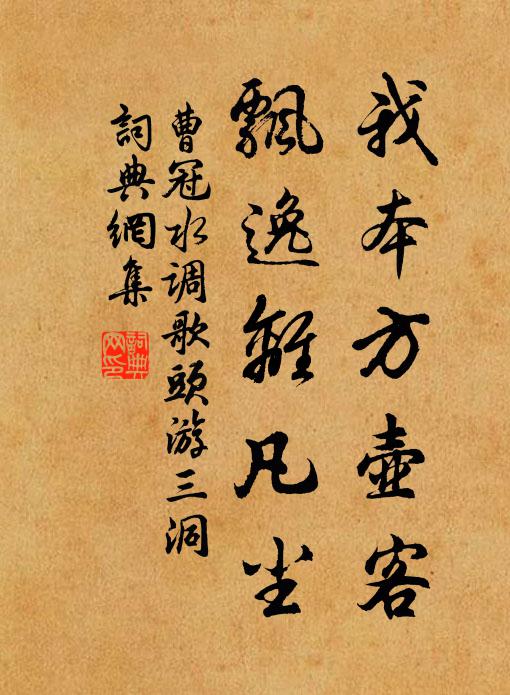 我本方壺客
飄逸離凡尘
曹冠水调歌頭游三洞
詞典網集
詞典
网印